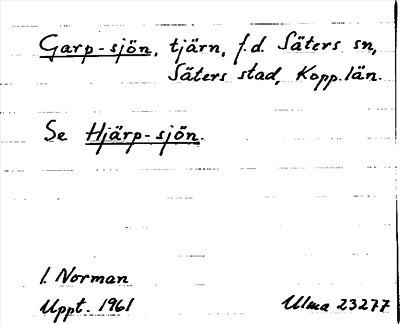 Garp-sjön, tjärn, f.d. Säters sn,
Säters stad, Kopp. län.
Se Hjärp-sjön.
I. Norman
Uppt. 1961
Ulma 23277